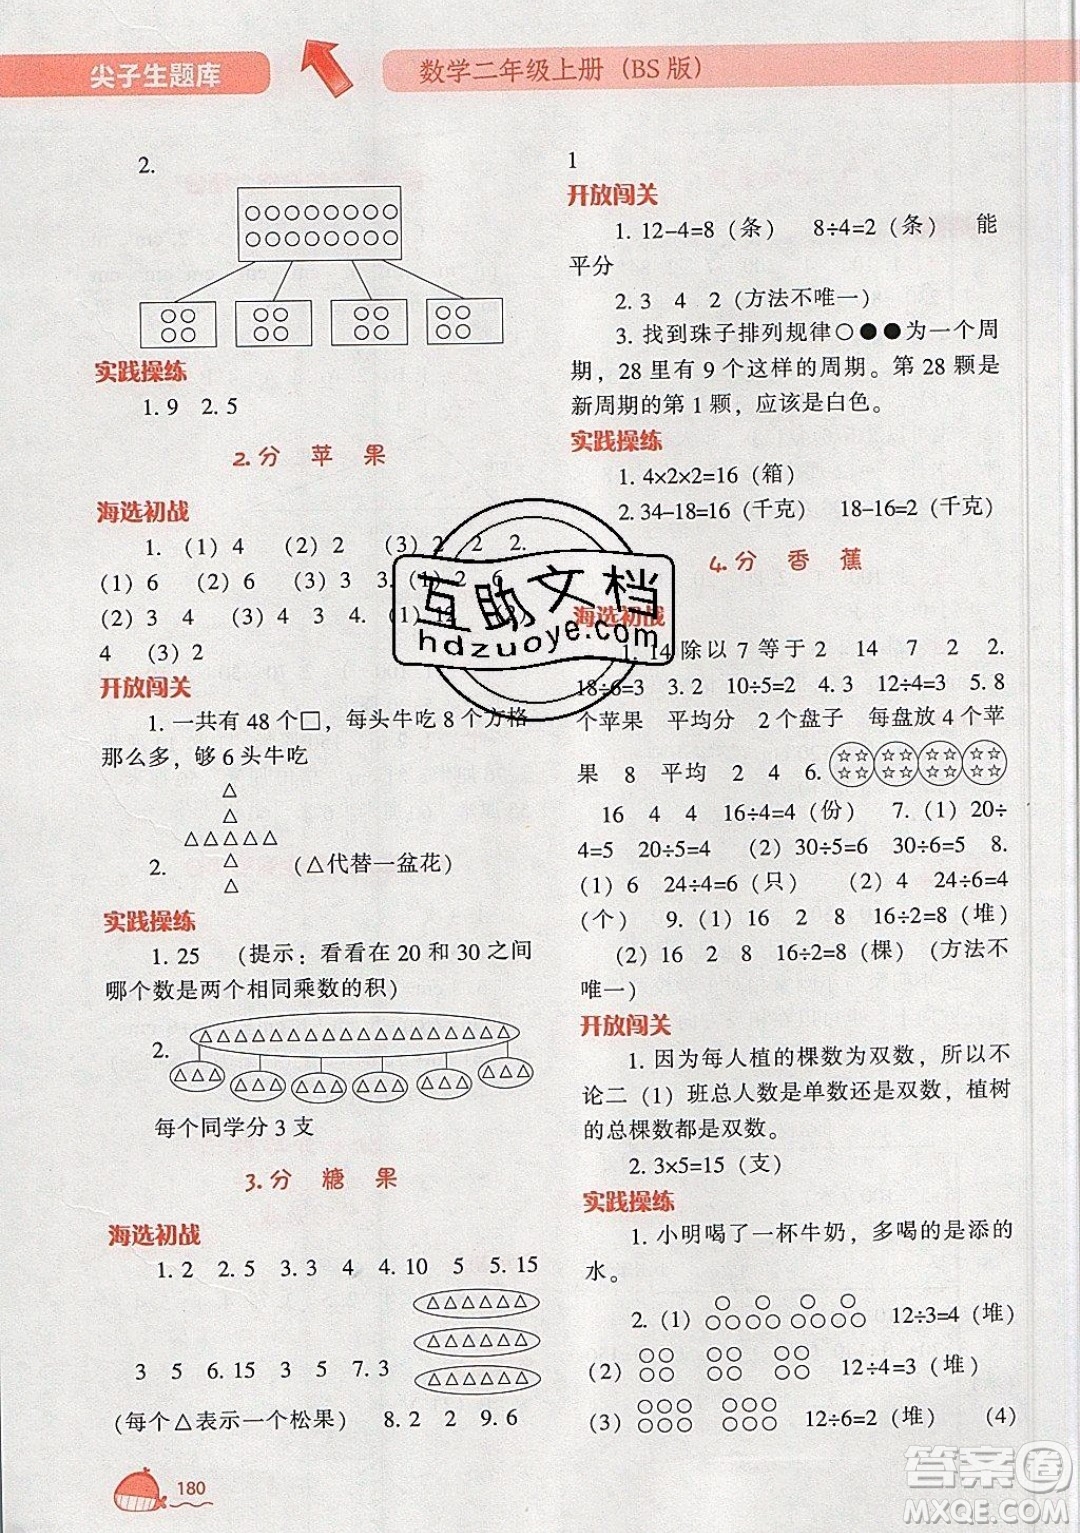 尖子生题库
数学二年级上册（BS版）
2.
实践操练
1. 9 2. 5
2. 分 苹 果
海选初战
1. （1）4 （2）2 （3）2 2 2.
（1）6 （2）6 （3）3 3. （1）2 6
（2）3 4 （3）4 3 4. （1）12 （2）
4 （3）2
开放闯关
1. 一共有48个□，每头牛吃8个方格
那么多，够6头牛吃
2. （△代替一盆花）
实践操练
1. 25 （提示：看看在20和30之间
哪个数是两个相同乘数的积）
2.
每个同学分3支
3. 分 糖 果
海选初战
1. 2 2. 5 3. 3 4 4. 10 5 5. 15
3 5 6. 15 3 5 7. 3
（每个△表示一个松果） 8. 2 2 9. 6
180
1
开放闯关
1. 12-4=8（条） 8÷4=2（条） 能
平分
2. 3 4 2（方法不唯一）
3. 找到珠子排列规律○●●为一个周
期，28里有9个这样的周期。第28颗是
新周期的第1颗，应该是白色。
实践操练
1. 4×2×2=16（箱）
2. 34-18=16（千克） 18-16=2（千克）
4. 分 香 蕉
海选初战
1. 14除以7等于2 14 7 2 2.
18÷6=3 3. 2 10÷5=2 4. 3 12÷4=3 5. 8
个苹果 平均分 2个盘子 每盘放4个苹
果 8 平均 2 4 6. ☆☆☆☆☆☆☆☆
☆☆☆☆☆☆☆☆
16 4 4 16÷4=4（份） 7. （1）20÷
4=5 20÷5=4 （2）30÷5=6 30÷6=5 8.
（1）6 24÷4=6（只） （2）4 24÷6=4
（个） 9. （1）16 2 8 16÷2=8（堆）
（2）16 8 2 16÷2=8（棵）（方法不
唯一）
开放闯关
1. 因为每人植的棵数为双数，所以不
论二（1）班总人数是单数还是双数，植树
的总棵数都是双数。
2. 3×5=15（支）
实践操练
1. 小明喝了一杯牛奶，多喝的是添的
水。
2. （1） 12÷3=4（堆）
（2） 12÷4=3（堆）
（3） 12÷6=2（堆） （4）
互助文档
hdzuoye.com
答案圈
MXQE.COM